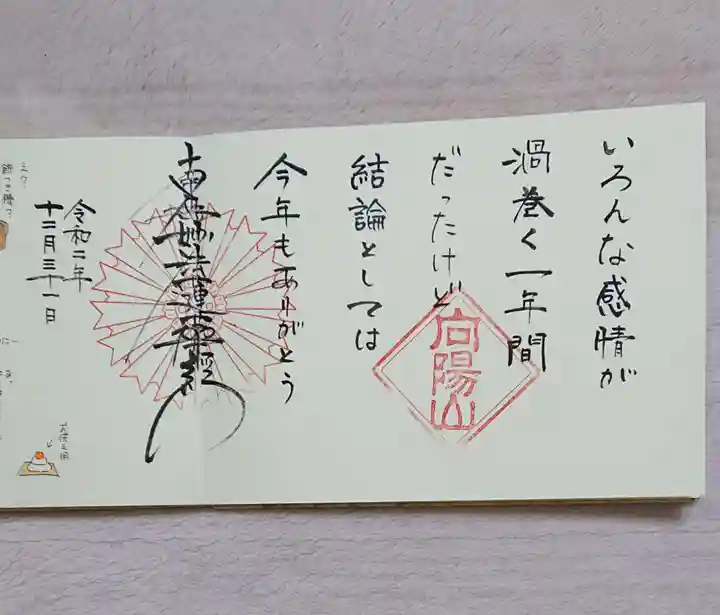 いろんな感情が
渦巻く一年間
だったけど
結論としては
今年もありがとう
向陽山
妙法蓮華経
令和二年
十二月三十一日